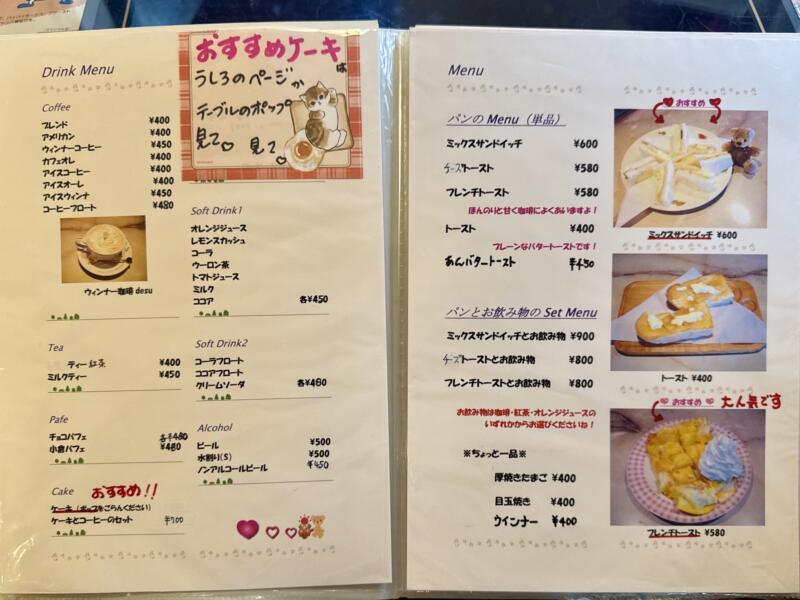 Drink Menu
おすすめケーキは
うしろのページか
テーブルのポップ
見て♡ 見て♡
Coffee
ブレンド ¥400
アメリカン ¥400
ウィンナーコーヒー ¥450
カフェオレ ¥400
アイスコーヒー ¥400
アイスオーレ ¥400
アイスウィンナ ¥450
コーヒーフロート ¥480
ウィンナー珈琲 desu
Tea
ティー 紅茶 ¥400
ミルクティー ¥450
Pafe
チョコパフェ 各¥480
小倉パフェ ¥480
Cake おすすめ!!
ケーキ(ポップをごらんください)
ケーキとコーヒーのセット ¥700
Soft Drink1
オレンジジュース
レモンスカッシュ
コーラ
ウーロン茶
トマトジュース
ミルク
ココア 各¥450
Soft Drink2
コーラフロート
ココアフロート
クリームソーダ 各¥480
Alcohol
ビール ¥500
水割り(S) ¥500
ノンアルコールビール ¥450
Menu
パンの Menu (単品)
ミックスサンドイッチ ¥600
チーズトースト ¥580
フレンチトースト ¥580
ほんのりと甘く珈琲によくあいますよ!
トースト ¥400
プレーンなバタートーストです!
あんバタートースト ¥450
パンとお飲み物の Set Menu
ミックスサンドイッチとお飲み物 ¥900
チーズトーストとお飲み物 ¥800
フレンチトーストとお飲み物 ¥800
お飲み物は珈琲・紅茶・オレンジジュースの
いずれかからお選びくださいね!
※ちょっと一品※
厚焼きたまご ¥400
目玉焼き ¥400
ウインナー ¥400
おすすめ
ミックスサンドイッチ ¥600
トースト ¥400
おすすめ 大人気です
フレンチトースト ¥580